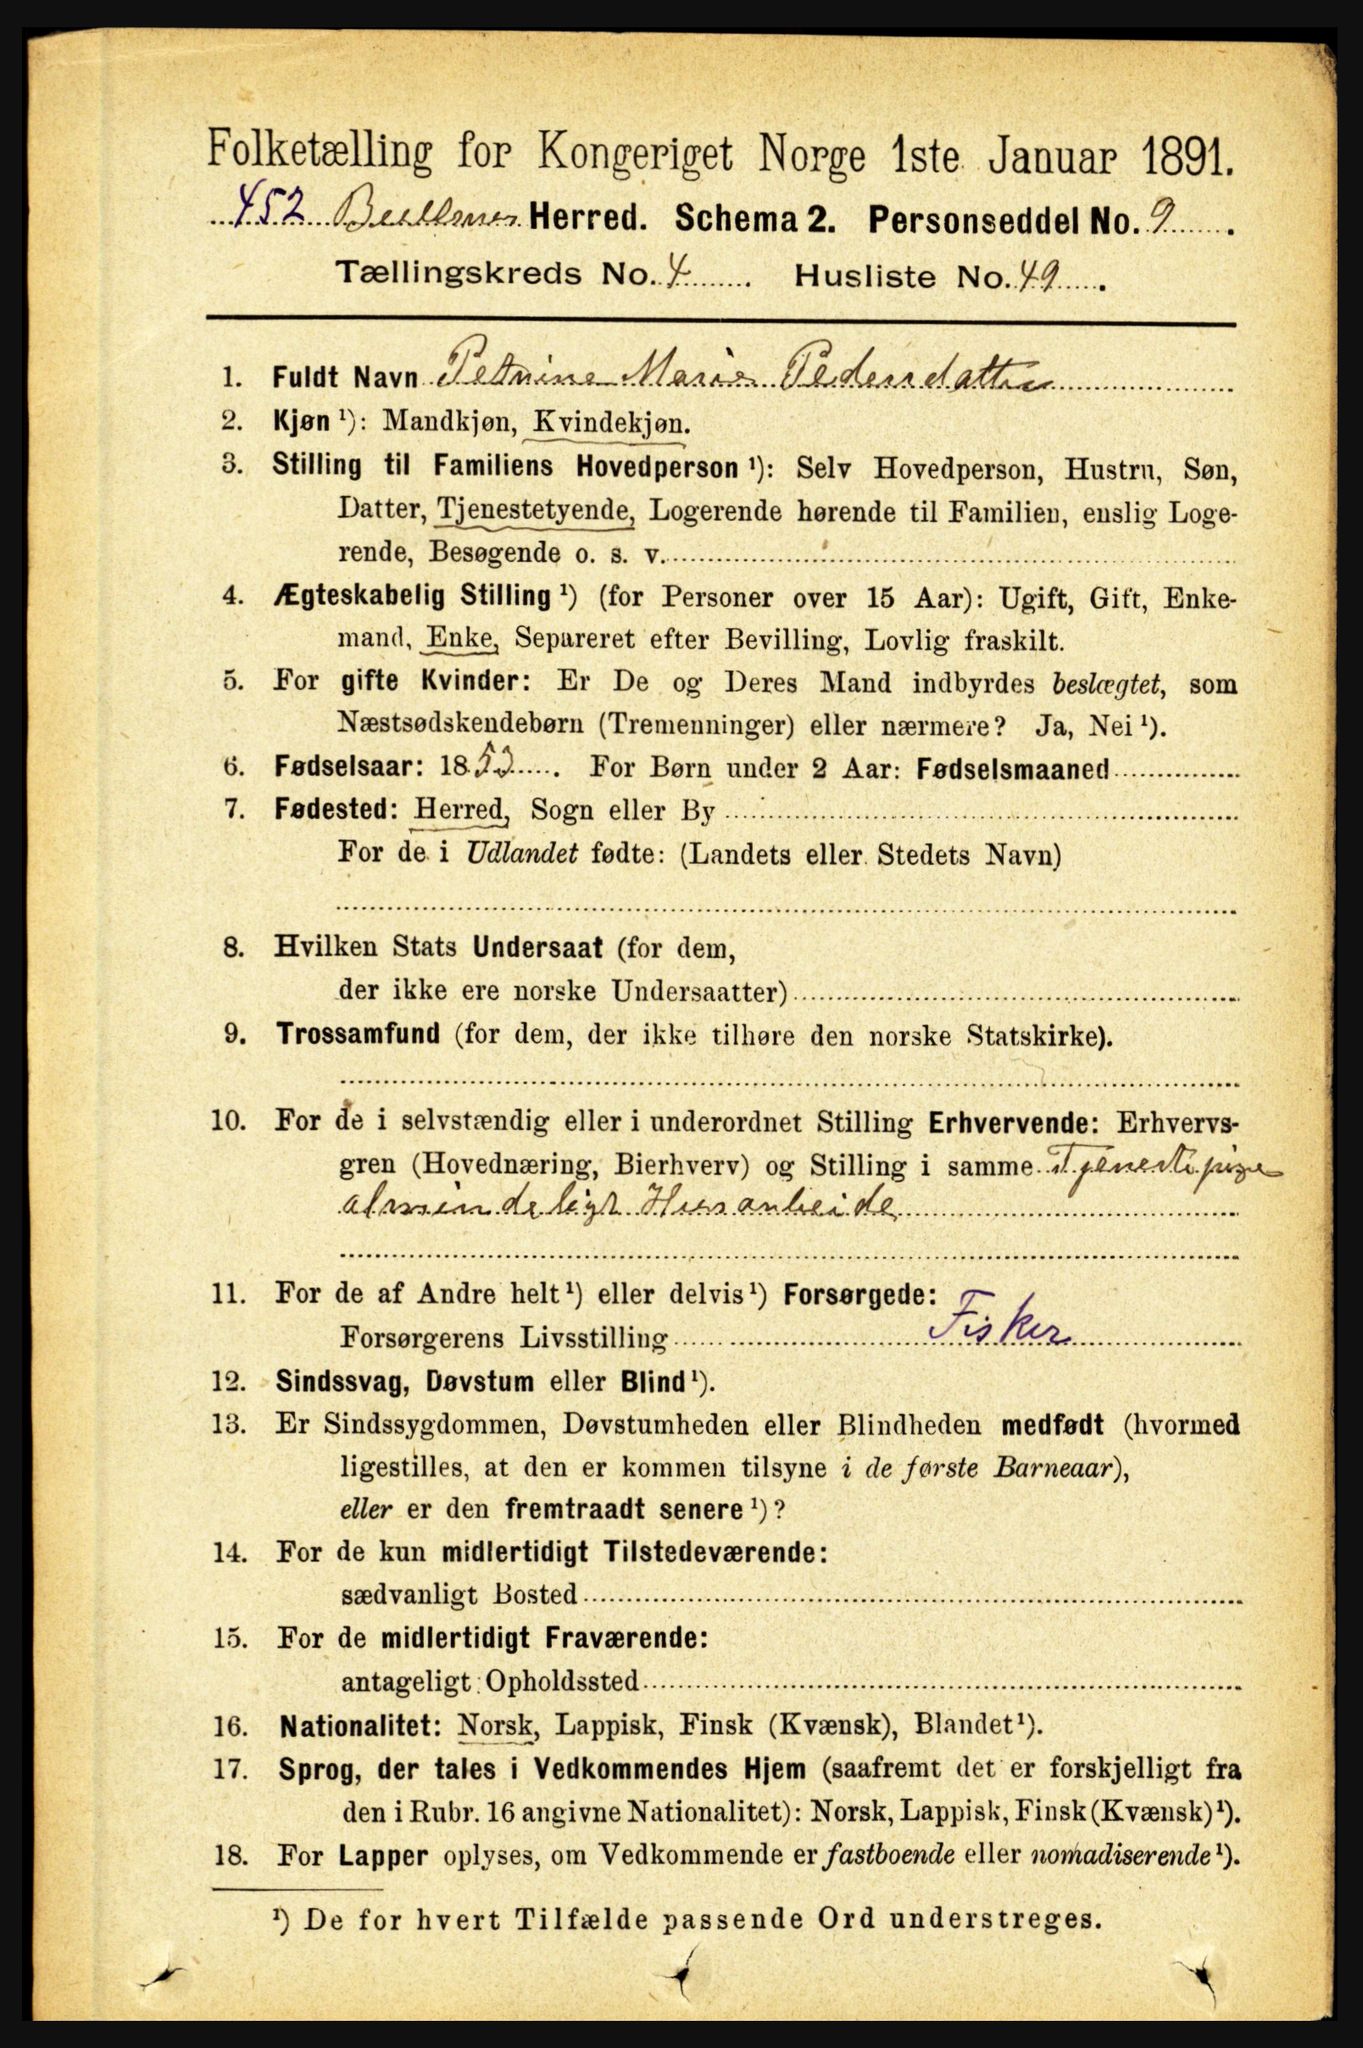 Folketælling for Kongeriget Norge 1ste Januar 1891.
452 Herred. Schema 2. Personseddel No. 9.
Tællingskreds No. 4. Husliste No. 49.
1. Fuldt Navn Petrine Marie Pedersdatter
2. Kjøn ¹): Mandkjøn, Kvindekjøn.
3. Stilling til Familiens Hovedperson ¹): Selv Hovedperson, Hustru, Søn,
Datter, Tjenestetyende, Logerende hørende til Familien, enslig Loge-
rende, Besøgende o. s. v.
4. Ægteskabelig Stilling ¹) (for Personer over 15 Aar): Ugift, Gift, Enke-
mand, Enke, Separeret efter Bevilling, Lovlig fraskilt.
5. For gifte Kvinder: Er De og Deres Mand indbyrdes beslægtet, som
Næstsødskendebørn (Tremenninger) eller nærmere? Ja, Nei ¹).
6. Fødselsaar: 1853. For Børn under 2 Aar: Fødselsmaaned
7. Fødested: Herred, Sogn eller By
For de i Udlandet fødte: (Landets eller Stedets Navn)
8. Hvilken Stats Undersaat (for dem,
der ikke ere norske Undersaatter)
9. Trossamfund (for dem, der ikke tilhøre den norske Statskirke).
10. For de i selvstændig eller i underordnet Stilling Erhvervende: Erhvervs-
gren (Hovednæring, Bierhverv) og Stilling i samme Tjenestepige
almindeligt Husarbeide
11. For de af Andre helt ¹) eller delvis ¹) Forsørgede:
Forsørgerens Livsstilling Fisker
12. Sindssvag, Døvstum eller Blind ¹).
13. Er Sindssygdommen, Døvstumheden eller Blindheden medfødt (hvormed
ligestilles, at den er kommen tilsyne i de første Barneaar),
eller er den fremtraadt senere ¹)?
14. For de kun midlertidigt Tilstedeværende:
sædvanligt Bosted
15. For de midlertidigt Fraværende:
antageligt Opholdssted
16. Nationalitet: Norsk, Lappisk, Finsk (Kvænsk), Blandet ¹).
17. Sprog, der tales i Vedkommendes Hjem (saafremt det er forskjelligt fra
den i Rubr. 16 angivne Nationalitet): Norsk, Lappisk, Finsk (Kvænsk) ¹).
18. For Lapper oplyses, om Vedkommende er fastboende eller nomadiserende ¹).
¹) De for hvert Tilfælde passende Ord understreges.